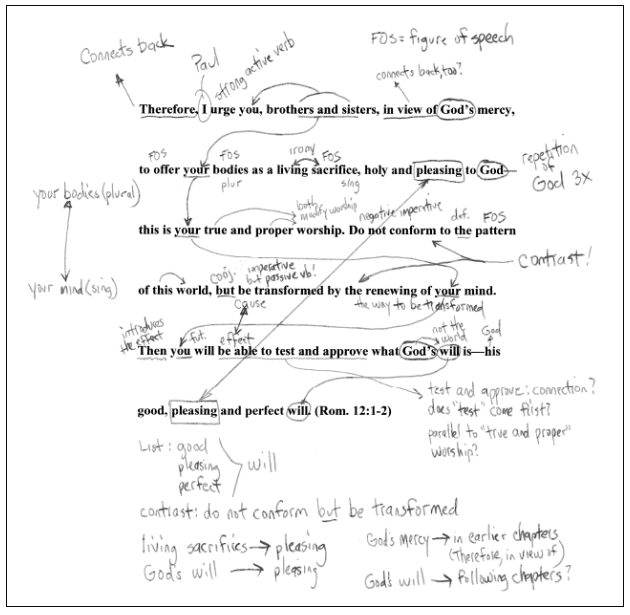 Connects back
Paul
strong active verb
FOS = figure of speech
connects back, too?
Therefore, I urge you, brothers and sisters, in view of God's mercy,
FOS FOS irony FOS
to offer your bodies as a living sacrifice, holy and pleasing to God—
plur sing
repetition of God 3x
your bodies (plural)
both modify worship
negative imperative
def. FOS
this is your true and proper worship. Do not conform to the pattern
contrast!
your mind (sing)
conj: imperative but passive vb!
of this world, but be transformed by the renewing of your mind.
cause
the way to be transformed
introduces the effect
fut.
effect
not the world
God
Then you will be able to test and approve what God's will is—his
test and approve: connection?
does "test" come first?
parallel to "true and proper" worship?
good, pleasing and perfect will. (Rom. 12:1-2)
List: good
pleasing
perfect
will
contrast: do not conform but be transformed
living sacrifices → pleasing
God's will → pleasing
God's mercy → in earlier chapters
(Therefore, in view of)
God's will → following chapters?